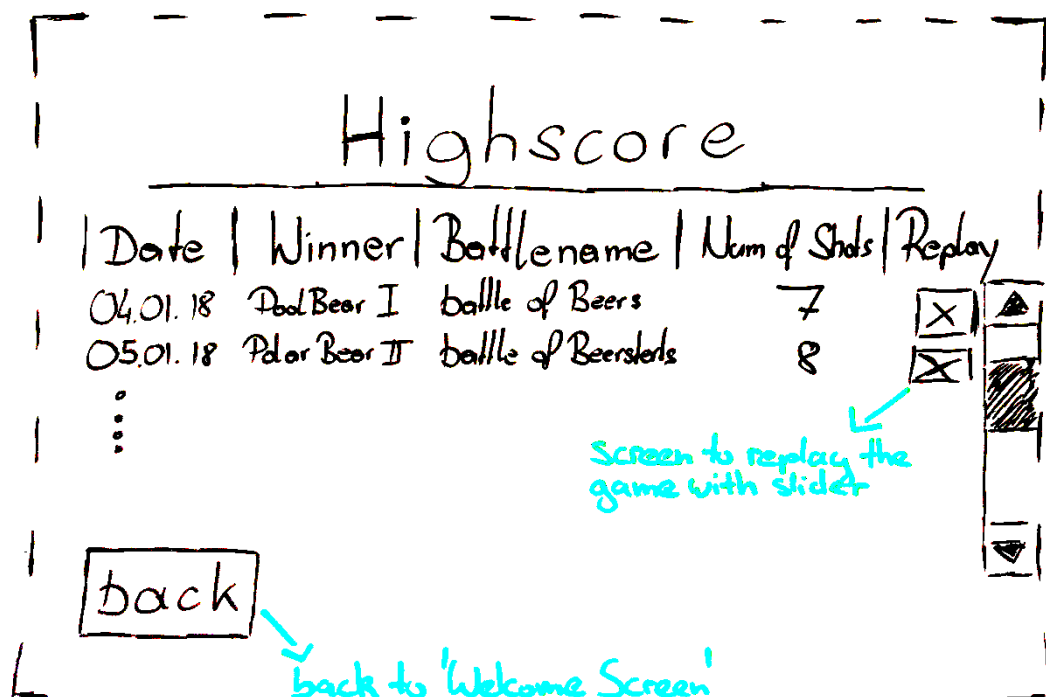 Highscore
| Date | Winner | Battlename | Num of Shots | Replay
04.01.18 Pool Bear I battle of Beers 7 X
05.01.18 Polar Bear II battle of 8 X
screen to replay the
game with slider
back
back to 'Welcome Screen'